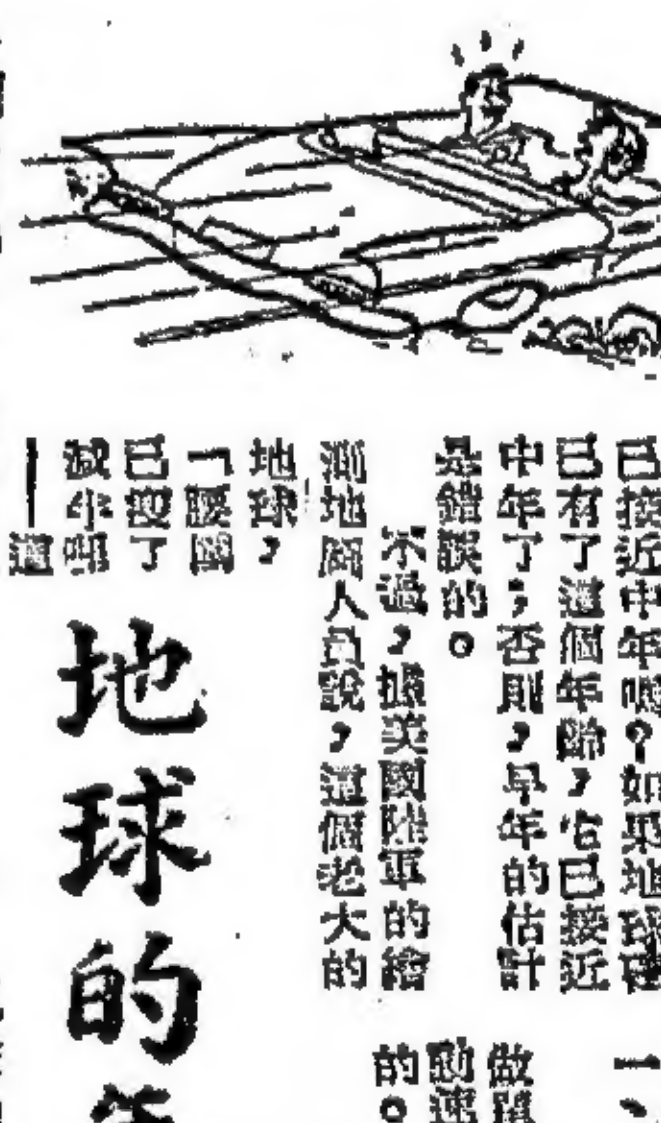 已接近中年呢？如果地球確
已有了這個年齡，它已接近
中年了；否則，早年的估計
是錯誤的。
不過，據美國陸軍的繪
測地圖人員說，這個老大的
地球，
「腰圍
已瘦了
減少哩
——這
地球的
一、
做
動速
的。